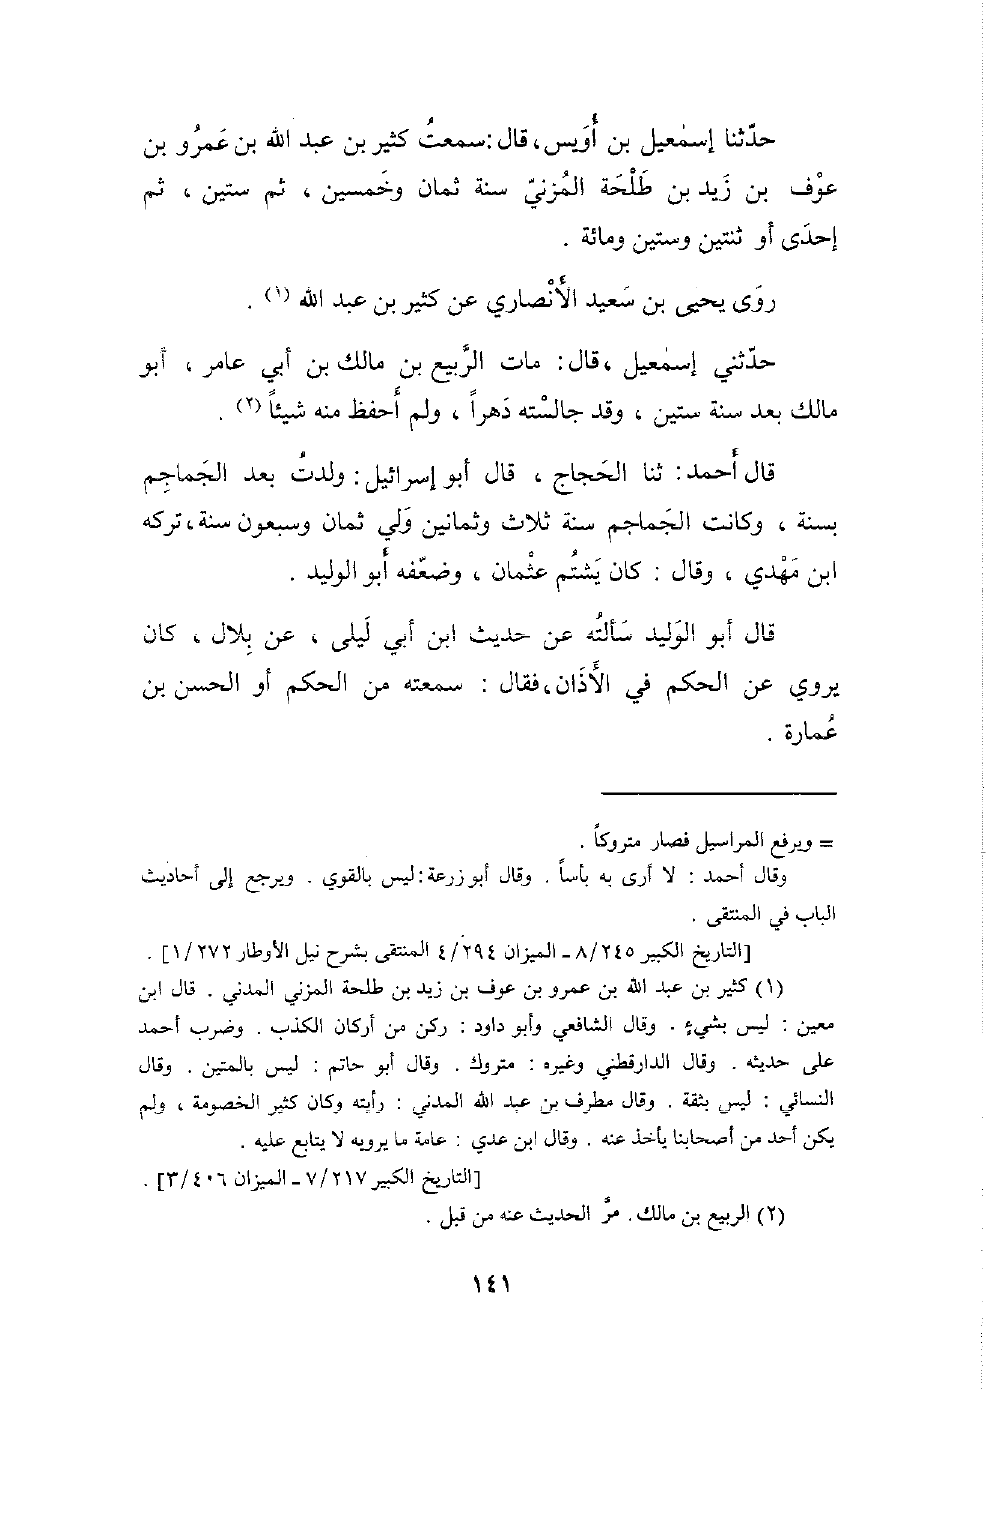 حدّثنا إسمٰعيل بن أُوَيس، قال: سمعتُ كثير بن عبد الله بن عَمرُو بن
عوْف بن زَيد بن طَلْحَة المُزنيّ سنة ثمان وخَمسين ، ثم ستين ، ثم
إحدَى أو ثنتين وستين ومائة .
روَى يحيى بن سَعيد الأَنْصاري عن كثير بن عبد الله (١) .
حدّثني إسمٰعيل ، قال : مات الرَّبيع بن مالك بن أبي عامر ، أبو
مالك بعد سنة ستين ، وقد جالسْته دَهراً ، ولم أَحفظ منه شيئاً (٢) .
قال أَحمد : ثنا الحَجاج ، قال أبو إسرائيل : ولدتُ بعد الجَماجِم
بسنة ، وكانت الجَماجم سنة ثلاث وثمانين وَلي ثمان وسبعون سنة ، تركه
ابن مَهْدي ، وقال : كان يَشتُم عثْمان ، وضعّفه أَبو الوليد .
قال أبو الوَليد سَألتُه عن حديث ابن أبي لَيلى ، عن بِلال ، كان
يروي عن الحكم في الأَذَان، فقال : سمعته من الحكم أو الحسن بن
عُمارة .
= ويرفع المراسيل فصار متروكاً .
وقال أحمد : لا أرى به بأساً . وقال أبو زرعة : ليس بالقوي . ويرجع إلى أحاديث
الباب في المنتقى .
[التاريخ الكبير ٨/٢٤٥ - الميزان ٤/٢٩٤ المنتقى بشرح نيل الأوطار ١/٢٧٢] .
(١) كثير بن عبد الله بن عمرو بن عوف بن زيد بن طلحة المزني المدني . قال ابن
معين : ليس بشيء . وقال الشافعي وأبو داود : ركن من أركان الكذب . وضرب أحمد
على حديثه . وقال الدارقطني وغيره : متروك . وقال أبو حاتم : ليس بالمتين . وقال
النسائي : ليس بثقة . وقال مطرف بن عبد الله المدني : رأيته وكان كثير الخصومة ، ولم
يكن أحد من أصحابنا يأخذ عنه . وقال ابن عدي : عامة ما يرويه لا يتابع عليه .
[التاريخ الكبير ٧/٢١٧ - الميزان ٣/٤٠٦] .
(٢) الربيع بن مالك. مرَّ الحديث عنه من قبل .
١٤١